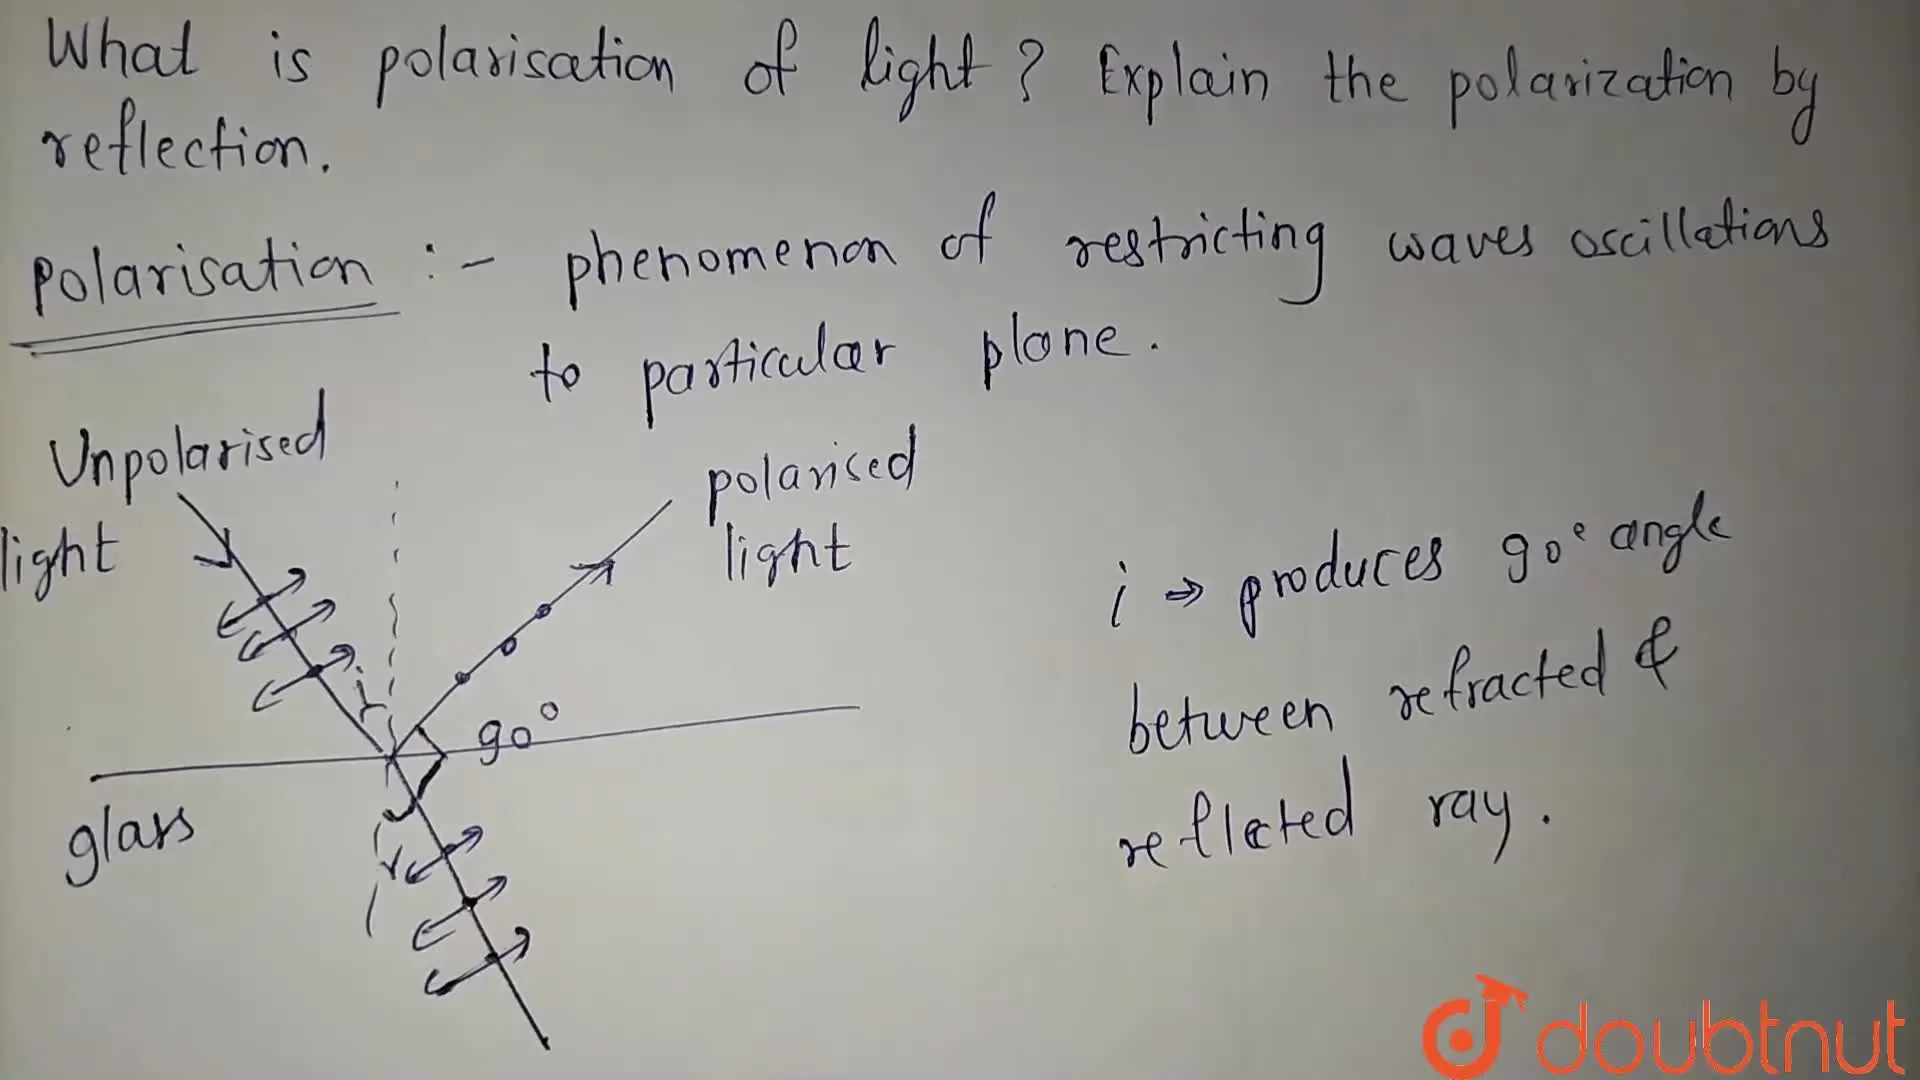 What is polarisation of light? Explain the polarization by
reflection.
Polarisation :- phenomenon of restricting waves oscillations
to particular plane.
Unpolarised
light
polarised
light
i
90°
glass
r
i ⇒ produces 90° angle
between refracted &
reflected ray.
doubtnut